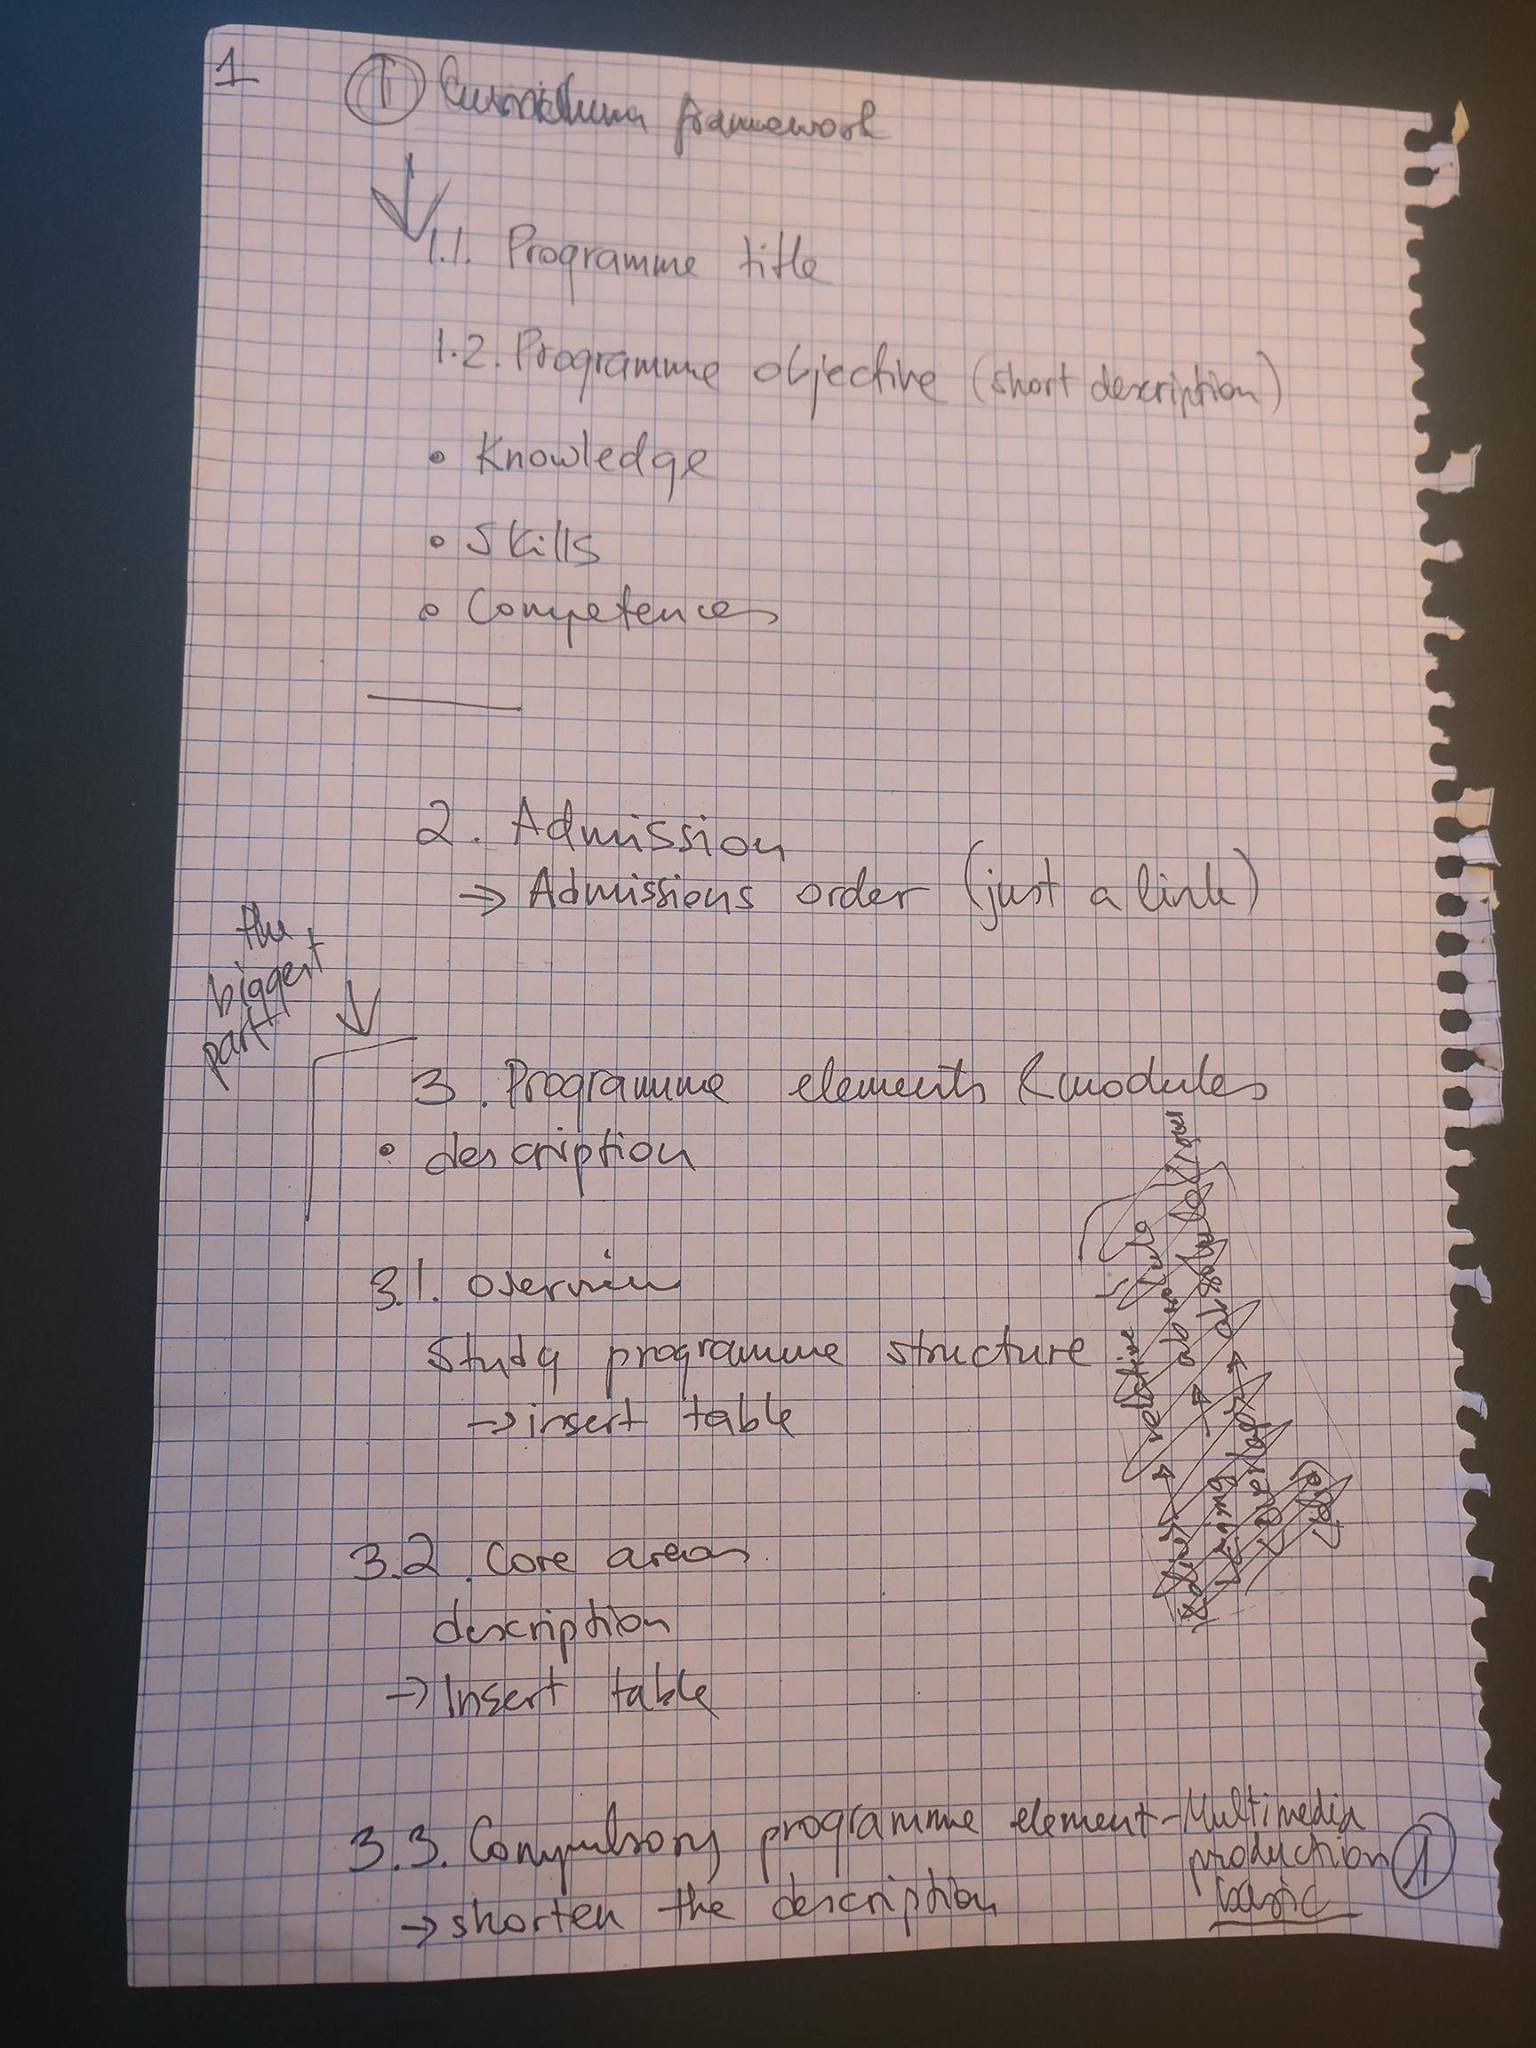 1
① Curriculum framework
1.1. Programme title
1.2. Programme objective (short description)
• Knowledge
• Skills
• Competences
2. Admission
→ Admissions order (just a link)
the
biggest
part
3. Programme elements & modules
• description
3.1. Overview
Study programme structure
→ insert table
3.2. Core areas
description
→ Insert table
3.3. Compulsory programme element - Multimedia
production ①
basic
→ shorten the description